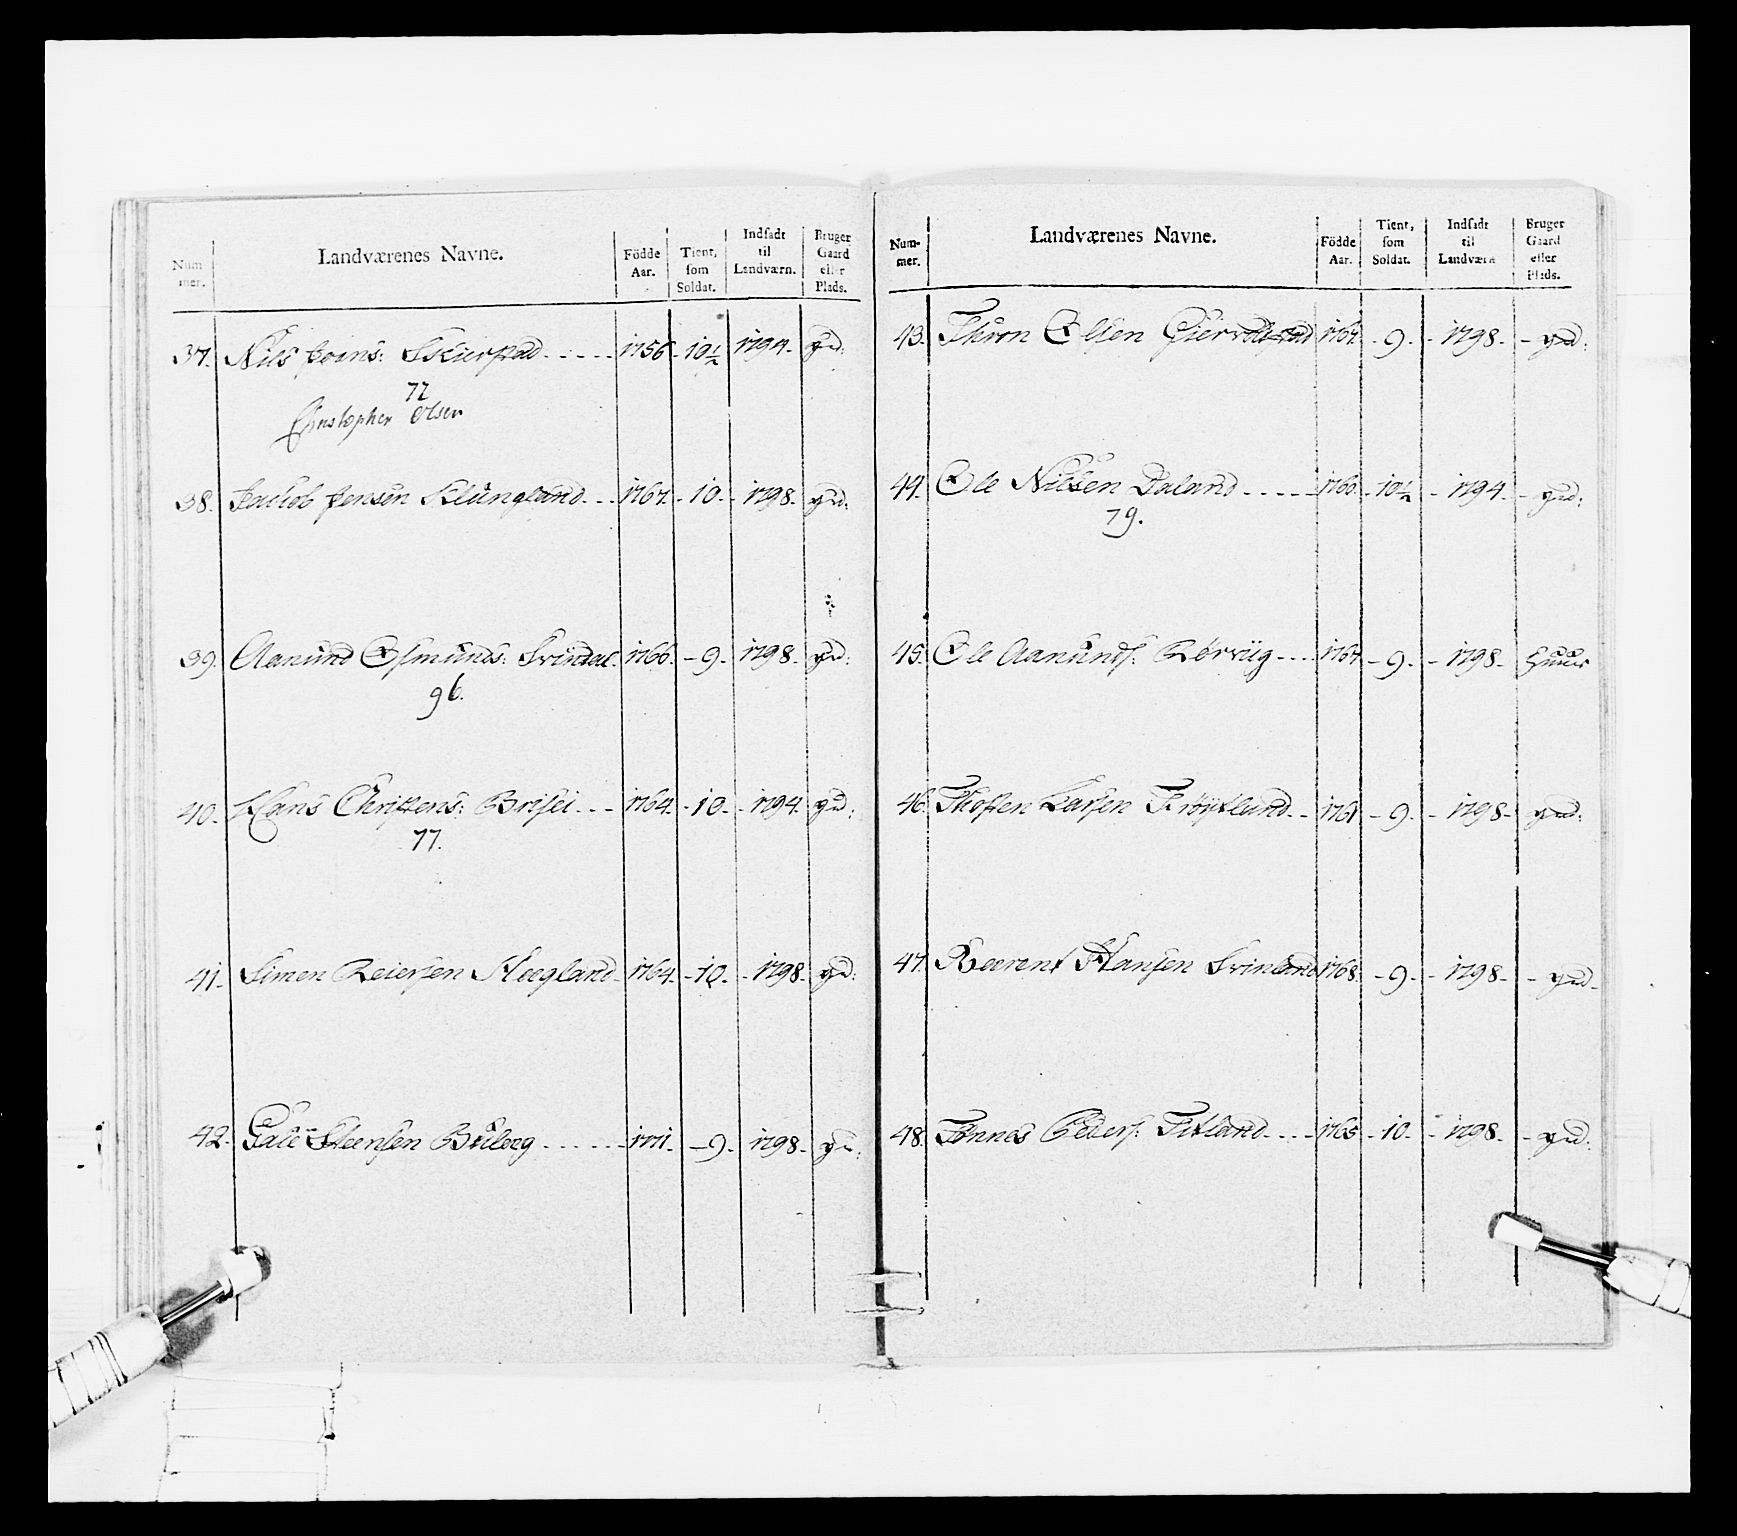 Num-
mer.
Landværenes Navne.
Födde
Aar.
Tient,
som
Soldat.
Indsadt
til
Landværn.
Bruger
Gaard
eller
Plads.
37. Nils Joens: Skierstad 1756 - 10½ 1794. gd:
72
Christopher Olsen
38. Jachob Jensen Klungland 1767. - 10. - 1798. gd:
39. Aanund Osmunds: Svindal. 1766. - 9. 1798. gd:
96.
40. Hans Christens: Brisei 1764. - 10. - 1794. gd:
77.
41. Simen Reiersen Heegland 1764. - 10. - 1798. gd:
42. Steensen 1771. - 9. 1798. gd:
Num-
mer.
Landværenes Navne.
Födde
Aar.
Tient,
som
Soldat.
Indsadt
til
Landværn
Bruger
Gaard
eller
Plads.
43. Thron Olsen 1767. - 9. - 1798. - gd:
44. Ole Nilsen Daland 1760. - 10½ - 1794. - gd:
79.
45. Ole Aanunds: Rørviig 1767. - 9. - 1798. Huus
46. Thosten Larsen Trøystland 1761 - 9. - 1798 - gd:
47. Beerent Hansen Svinland 1768. - 9. - 1798. - gd.
48. Tønnes Peders: Titland 1765 - 10. - 1798. - gd: